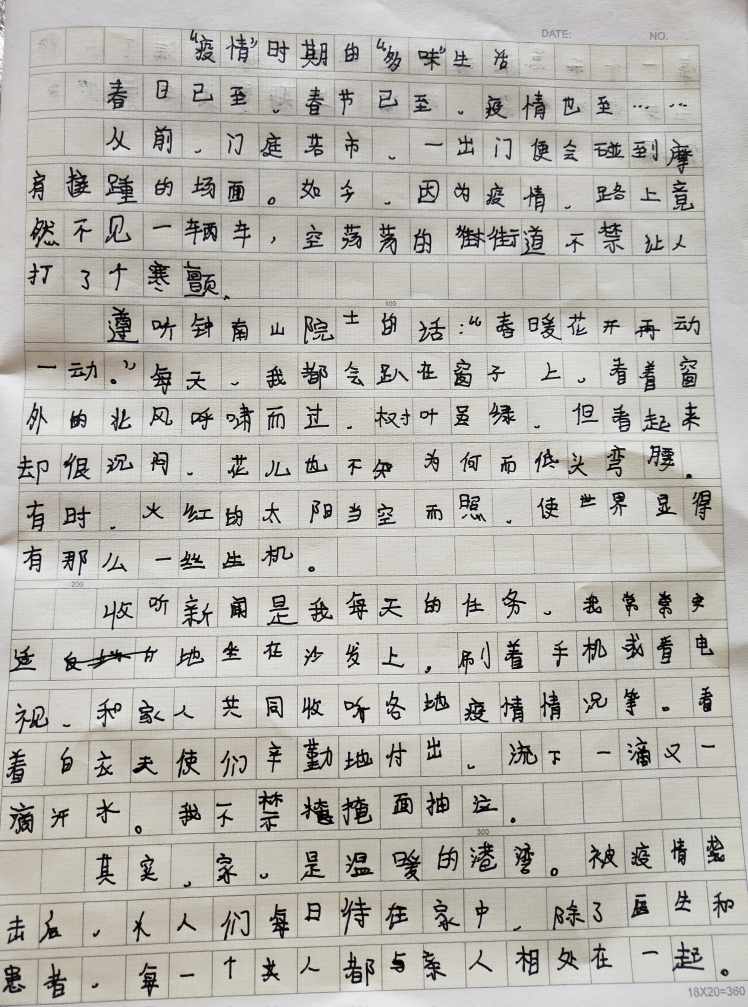 DATE: NO.
“疫情”时期的“多味”生活
春日已至、春节已至、疫情也至……
从前、门庭若市、一出门便会碰到摩
肩接踵的场面。如今、因为疫情、路上竟
然不见一辆车，空荡荡的街道不禁让人
打了个寒颤、
100
遵听钟南山院士的话：“春暖花开再动
一动。”每天、我都会趴在窗子上、看着窗
外的北风呼啸而过、树叶虽绿、但看起来
却很沉闷、花儿也不知为何而低头弯腰。
有时、火红的太阳当空而照、使世界显得
有那么一丝生机。
200
收听新闻是我每天的任务、我常常安
适地坐在沙发上，刷着手机或看电
视、和家人共同收听各地疫情情况等。看
着白衣天使们辛勤地付出、流下一滴又一
滴汗水。我不禁掩面抽泣。
300
其实、家、是温暖的港湾。被疫情袭
击后、人们每日待在家中、除了医生和
患者、每一个人都与家人相处在一起。
18X20=360